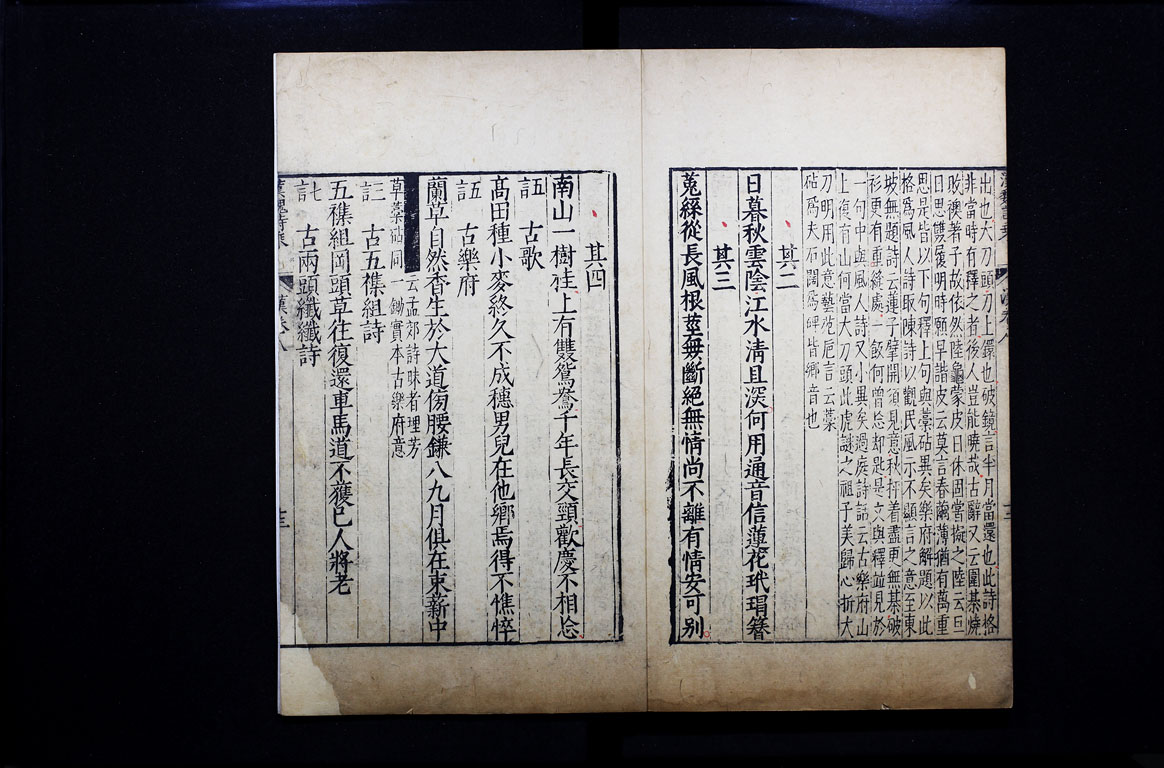 出也大刀頭刀上鐶也破鏡言半月當還也此詩格
非當時有釋之者後人豈能曉哉古辭又云圍棊燒
敗襖著子故依然陸龜蒙皮日休固嘗擬之陸云旦
日思雙履明時願早諧皮云莫言春繭薄猶有萬重
思是皆以下句釋上句與藁砧異矣樂府解題以此
格爲風人詩取陳詩以觀民風示不顯言之意至東
坡無題詩云蓮子擘開須見意秋枰着盡更無棊破
衫更有重縫處一飯何曾忘却匙是文與釋並見於
一句中與風人詩又小異矣過庭詩話云古樂府山
上復有山何當大刀頭此虎謎之祖子美歸心折大
刀明用此意藝苑巵言云藁
砧爲夫石闕爲碑皆鄉音也
其二
日暮秋雲陰江水淸且深何用通音信蓮花玳瑁簪
其三
菟絲從長風根莖無斷絕無情尚不離有情安可别
其四
南山一樹桂上有雙鴛鴦千年長交頸歡慶不相忘
五 古歌
高田種小麥終久不成穗男兒在他鄉焉得不憔悴
五 古樂府
蘭草自然香生於大道傍腰鎌八九月俱在束薪中
云孟郊詩昧者理芳
草藁砧同一鋤實本古樂府意
三 古五襍組詩
五襍組岡頭草往復還車馬道不獲已人將老
七 古兩頭纖纖詩
漢魏詩乘 漢卷八 十三